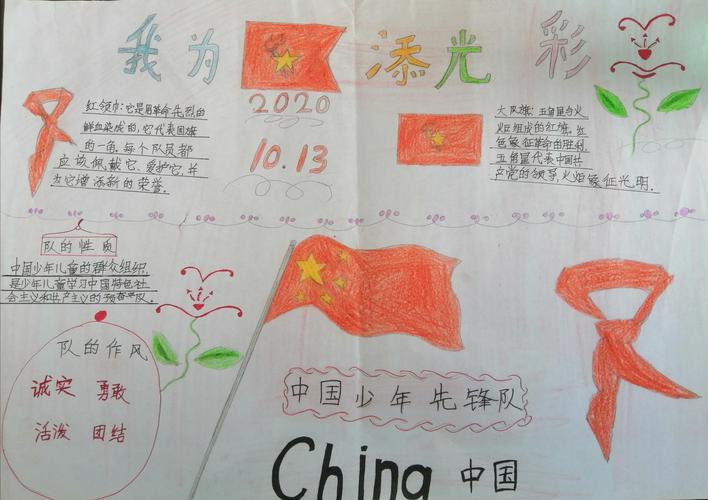 我为添光彩
红领巾:它是用革命先烈的
鲜血染成的,它代表国旗
的一角,每个队员都
应该佩戴它、爱护它,并
为它增添新的荣誉.
2020
10.13
大队旗:五角星与火
炬组成的红旗,红
色象征革命的胜利,
五角星代表中国共
产党的领导,火炬象征光明.
队的性质
中国少年儿童的群众组织,
是少年儿童学习中国特色社
会主义和共产主义的预备队
队的作风
诚实 勇敢
活泼 团结
中国少年先锋队
China 中国